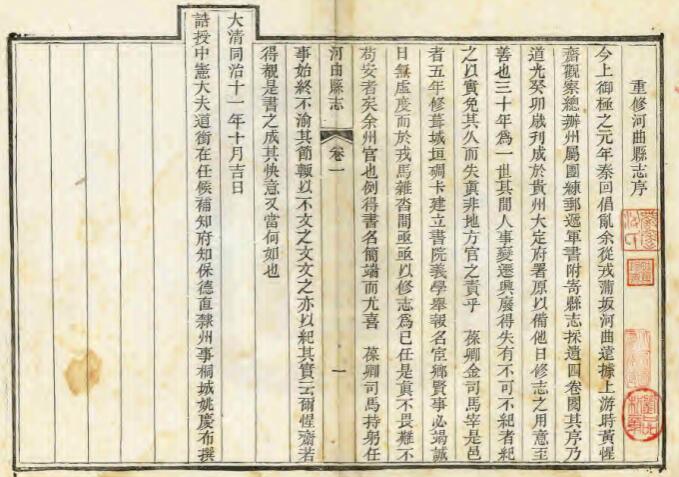 重修河曲縣志序
今上御極之元年秦回倡亂余從戎蒲坂河曲遠據上游時黃惺
齋觀察總辦州屬團練郵遞軍書附寄縣志採遺四卷閱其序乃
道光癸卯歲刊成於貴州大定府署原以備他日修志之用意至
善也三十年爲一世其間人事變遷興廢得失有不可不紀者紀
之以實免其久而失眞非地方官之責乎 葆卿金司馬宰是邑
者五年修葺城垣碉卡建立書院義學舉報名宦鄉賢事必竭誠
日無虛度而於戎馬雜沓間亟亟以修志爲己任是眞不畏難不
苟安者矣余州官也例得書名簡端而尤喜 葆卿司馬持躬任
河曲縣志 卷一 一
事始終不渝其節輒以不文之文文之亦以紀其實云爾惺齋若
得覩是書之成其快意又當何如也
大清同治十一年十月吉日
誥授中憲大夫道銜在任候補知府知保德直隸州事桐城姚慶布撰